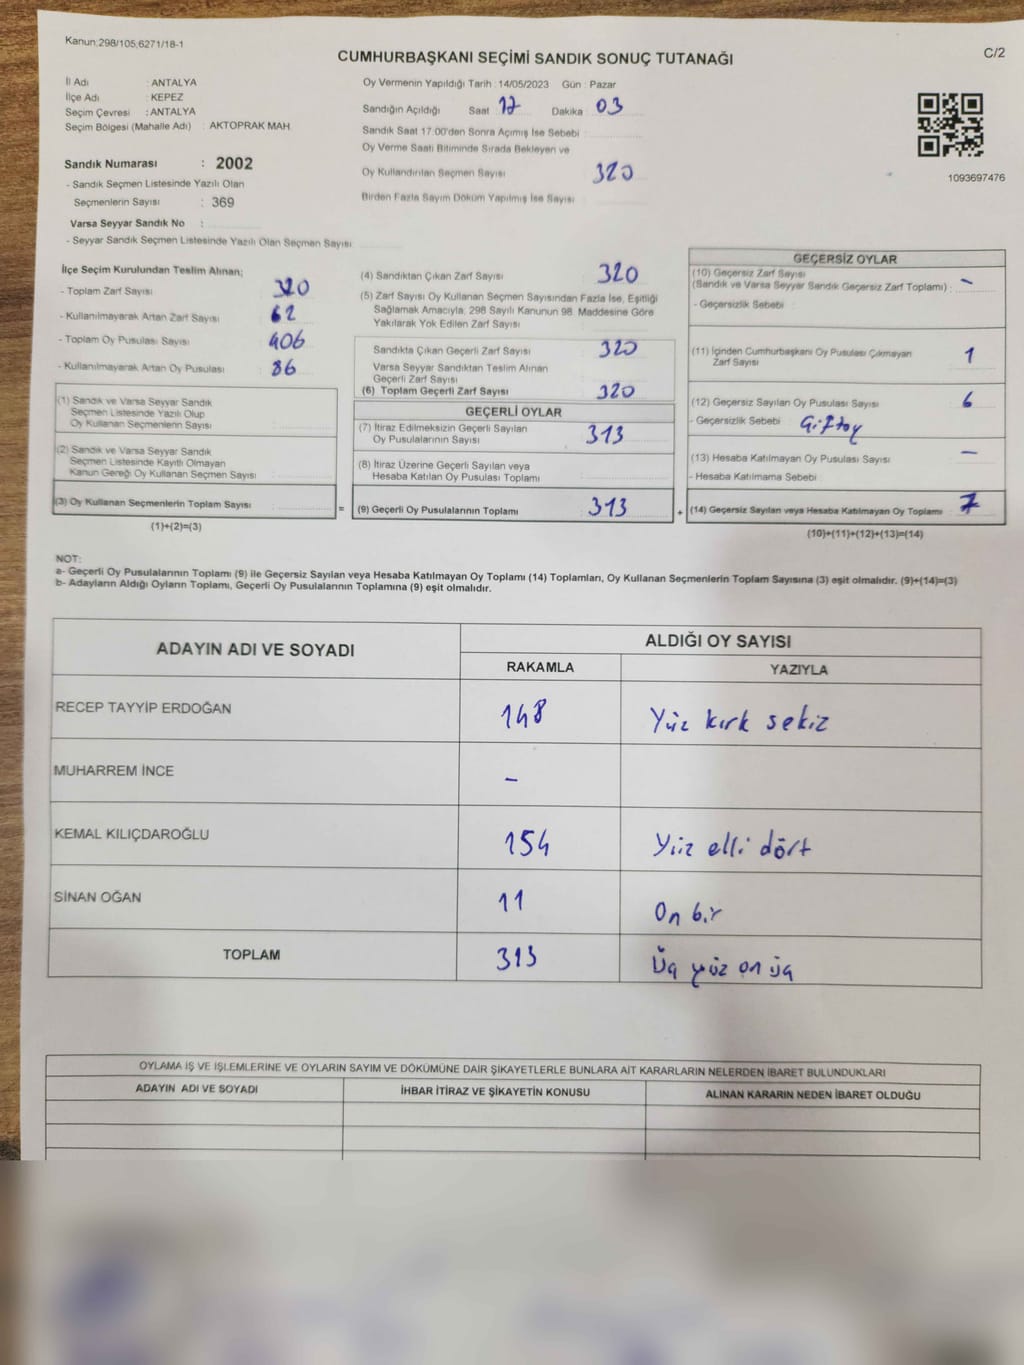 Kanun:298/105,6271/18-1
CUMHURBAŞKANI SEÇİMİ SANDIK SONUÇ TUTANAĞI
C/2
İl Adı : ANTALYA
İlçe Adı : KEPEZ
Seçim Çevresi : ANTALYA
Seçim Bölgesi (Mahalle Adı) : AKTOPRAK MAH
Sandık Numarası : 2002
- Sandık Seçmen Listesinde Yazılı Olan
Seçmenlerin Sayısı : 369
Varsa Seyyar Sandık No :
- Seyyar Sandık Seçmen Listesinde Yazılı Olan Seçmen Sayısı
Oy Vermenin Yapıldığı Tarih : 14/05/2023 Gün : Pazar
Sandığın Açıldığı Saat 17 Dakika 03
Sandık Saat 17:00'den Sonra Açılmış İse Sebebi :
Oy Verme Saati Bitiminde Sırada Bekleyen ve
Oy Kullandırılan Seçmen Sayısı 320
Birden Fazla Sayım Döküm Yapılmış İse Sayısı
1093697476
İlçe Seçim Kurulundan Teslim Alınan;
- Toplam Zarf Sayısı 320
- Kullanılmayarak Artan Zarf Sayısı 62
- Toplam Oy Pusulası Sayısı 406
- Kullanılmayarak Artan Oy Pusulası 86
(1) Sandık ve Varsa Seyyar Sandık
Seçmen Listesinde Yazılı Olup
Oy Kullanan Seçmenlerin Sayısı
(2) Sandık ve Varsa Seyyar Sandık
Seçmen Listesinde Kayıtlı Olmayan
Kanun Gereği Oy Kullanan Seçmen Sayısı
(3) Oy Kullanan Seçmenlerin Toplam Sayısı
(1)+(2)=(3)
(4) Sandıktan Çıkan Zarf Sayısı 320
(5) Zarf Sayısı Oy Kullanan Seçmen Sayısından Fazla İse, Eşitliği
Sağlamak Amacıyla, 298 Sayılı Kanunun 98. Maddesine Göre
Yakılarak Yok Edilen Zarf Sayısı
Sandıkta Çıkan Geçerli Zarf Sayısı 320
Varsa Seyyar Sandıktan Teslim Alınan
Geçerli Zarf Sayısı
(6) Toplam Geçerli Zarf Sayısı 320
GEÇERLİ OYLAR
(7) İtiraz Edilmeksizin Geçerli Sayılan
Oy Pusulalarının Sayısı 313
(8) İtiraz Üzerine Geçerli Sayılan veya
Hesaba Katılan Oy Pusulası Toplamı
= (9) Geçerli Oy Pusulalarının Toplamı 313 +
GEÇERSİZ OYLAR
(10) Geçersiz Zarf Sayısı
(Sandık ve Varsa Seyyar Sandık Geçersiz Zarf Toplamı) : -
- Geçersizlik Sebebi
(11) İçinden Cumhurbaşkanı Oy Pusulası Çıkmayan
Zarf Sayısı 1
(12) Geçersiz Sayılan Oy Pusulası Sayısı 6
- Geçersizlik Sebebi : Çiftoy
(13) Hesaba Katılmayan Oy Pusulası Sayısı -
- Hesaba Katılmama Sebebi
(14) Geçersiz Sayılan veya Hesaba Katılmayan Oy Toplamı 7
(10)+(11)+(12)+(13)=(14)
NOT:
a- Geçerli Oy Pusulalarının Toplamı (9) ile Geçersiz Sayılan veya Hesaba Katılmayan Oy Toplamı (14) Toplamları, Oy Kullanan Seçmenlerin Toplam Sayısına (3) eşit olmalıdır. (9)+(14)=(3)
b- Adayların Aldığı Oyların Toplamı, Geçerli Oy Pusulalarının Toplamına (9) eşit olmalıdır.
ADAYIN ADI VE SOYADI
ALDIĞI OY SAYISI
RAKAMLA YAZIYLA
RECEP TAYYİP ERDOĞAN 148 Yüz kırk sekiz
MUHARREM İNCE -
KEMAL KILIÇDAROĞLU 154 Yüz elli dört
SİNAN OĞAN 11 On bir
TOPLAM 313 Üç yüz on üç
OYLAMA İŞ VE İŞLEMLERİNE VE OYLARIN SAYIM VE DÖKÜMÜNE DAİR ŞİKAYETLERLE BUNLARA AİT KARARLARIN NELERDEN İBARET BULUNDUKLARI
ADAYIN ADI VE SOYADI İHBAR İTİRAZ VE ŞİKAYETİN KONUSU ALINAN KARARIN NEDEN İBARET OLDUĞU